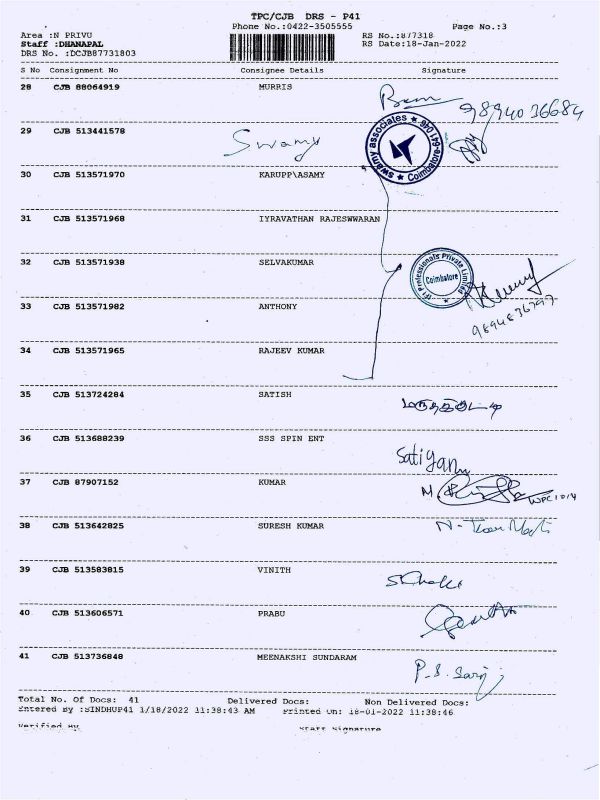 TPC/CJB DRS - P41
Phone No.:0422-3505555 Page No.:3
Area :N PRIVU RS No.:877318
Staff :DHANAPAL RS Date:18-Jan-2022
DRS No. :DCJB87731803
S No Consignment No Consignee Details Signature
28 CJB 88064919 MURRIS
9894036684
29 CJB 513441578 Swamy swamy associates Coimbatore-641 046
30 CJB 513571970 KARUPP\ASAMY
31 CJB 513571968 IYRAVATHAN RAJESWWARAN
32 CJB 513571938 SELVAKUMAR Professionals Private Limited Coimbatore
33 CJB 513571982 ANTHONY
34 CJB 513571965 RAJEEV KUMAR
35 CJB 513724284 SATISH
36 CJB 513688239 SSS SPIN ENT
37 CJB 87907152 KUMAR
38 CJB 513642825 SURESH KUMAR
39 CJB 513583815 VINITH
40 CJB 513606571 PRABU
41 CJB 513736848 MEENAKSHI SUNDARAM
Total No. Of Docs: 41 Delivered Docs: Non Delivered Docs:
Entered By :SINDHUP41 1/18/2022 11:38:43 AM Printed On: 18-01-2022 11:38:46
Verified By Staff Signature